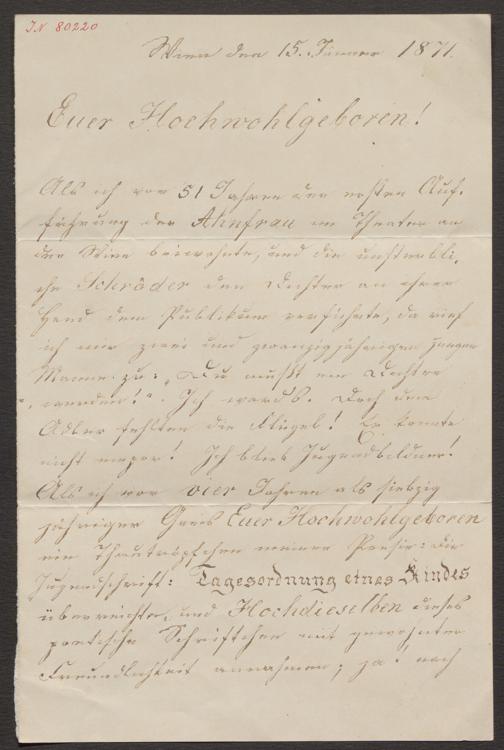 I.N 80220
Wien den 15. Jänner 1871.
Euer Hochwohlgeboren!
Als ich vor 51 Jahren der ersten Auf-
führung der Ahnfrau im Theater an
der Wien beiwohnte, und die unsterbli-
che Schröder den Dichter an ihrer
Hand dem Publikum vorführte, da rief
ich mir zwei und zwanzigjährigen jungen
Manne zu: „Du mußt ein Dichter
„werden!". Ich wards. Doch dem
Adler fehlten die Flügel! Er konnte
nicht empor! Ich blieb Jugendbildner!
Als ich vor vier Jahren als siebzig
jähriger Greis Euer Hochwohlgeboren
ein Thautröpfchen meiner Poesie: die
Jugendschrift: Tagesordnung eines Kindes
überreichte, und Hochdieselben dieses
poetische Schriftchen mit gewohnter
Freundlichkeit annahmen; ja! nach